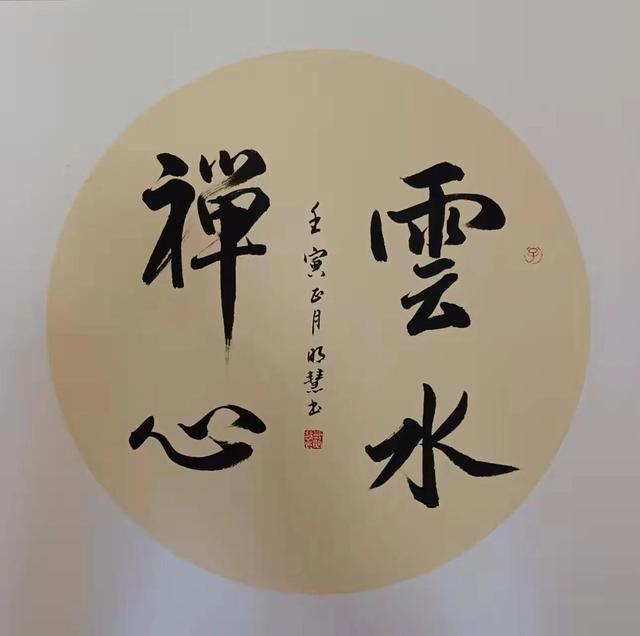 雲水
禪心
壬寅正月明慧书